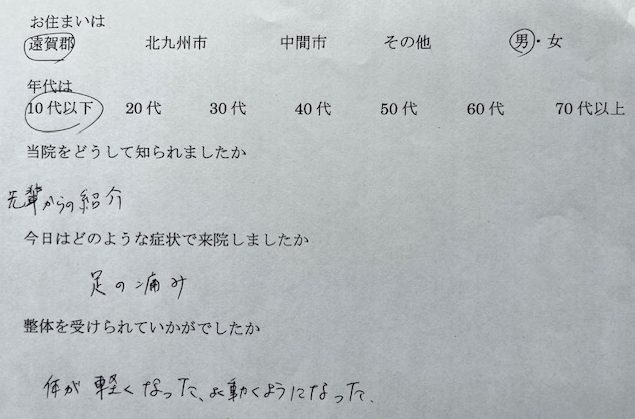 お住まいは
遠賀郡 北九州市 中間市 その他 男・女
年代は
10代以下 20代 30代 40代 50代 60代 70代以上
当院をどうして知られましたか
先輩からの紹介
今日はどのような症状で来院しましたか
足の痛み
整体を受けられていかがでしたか
体が軽くなった、よく動くようになった、